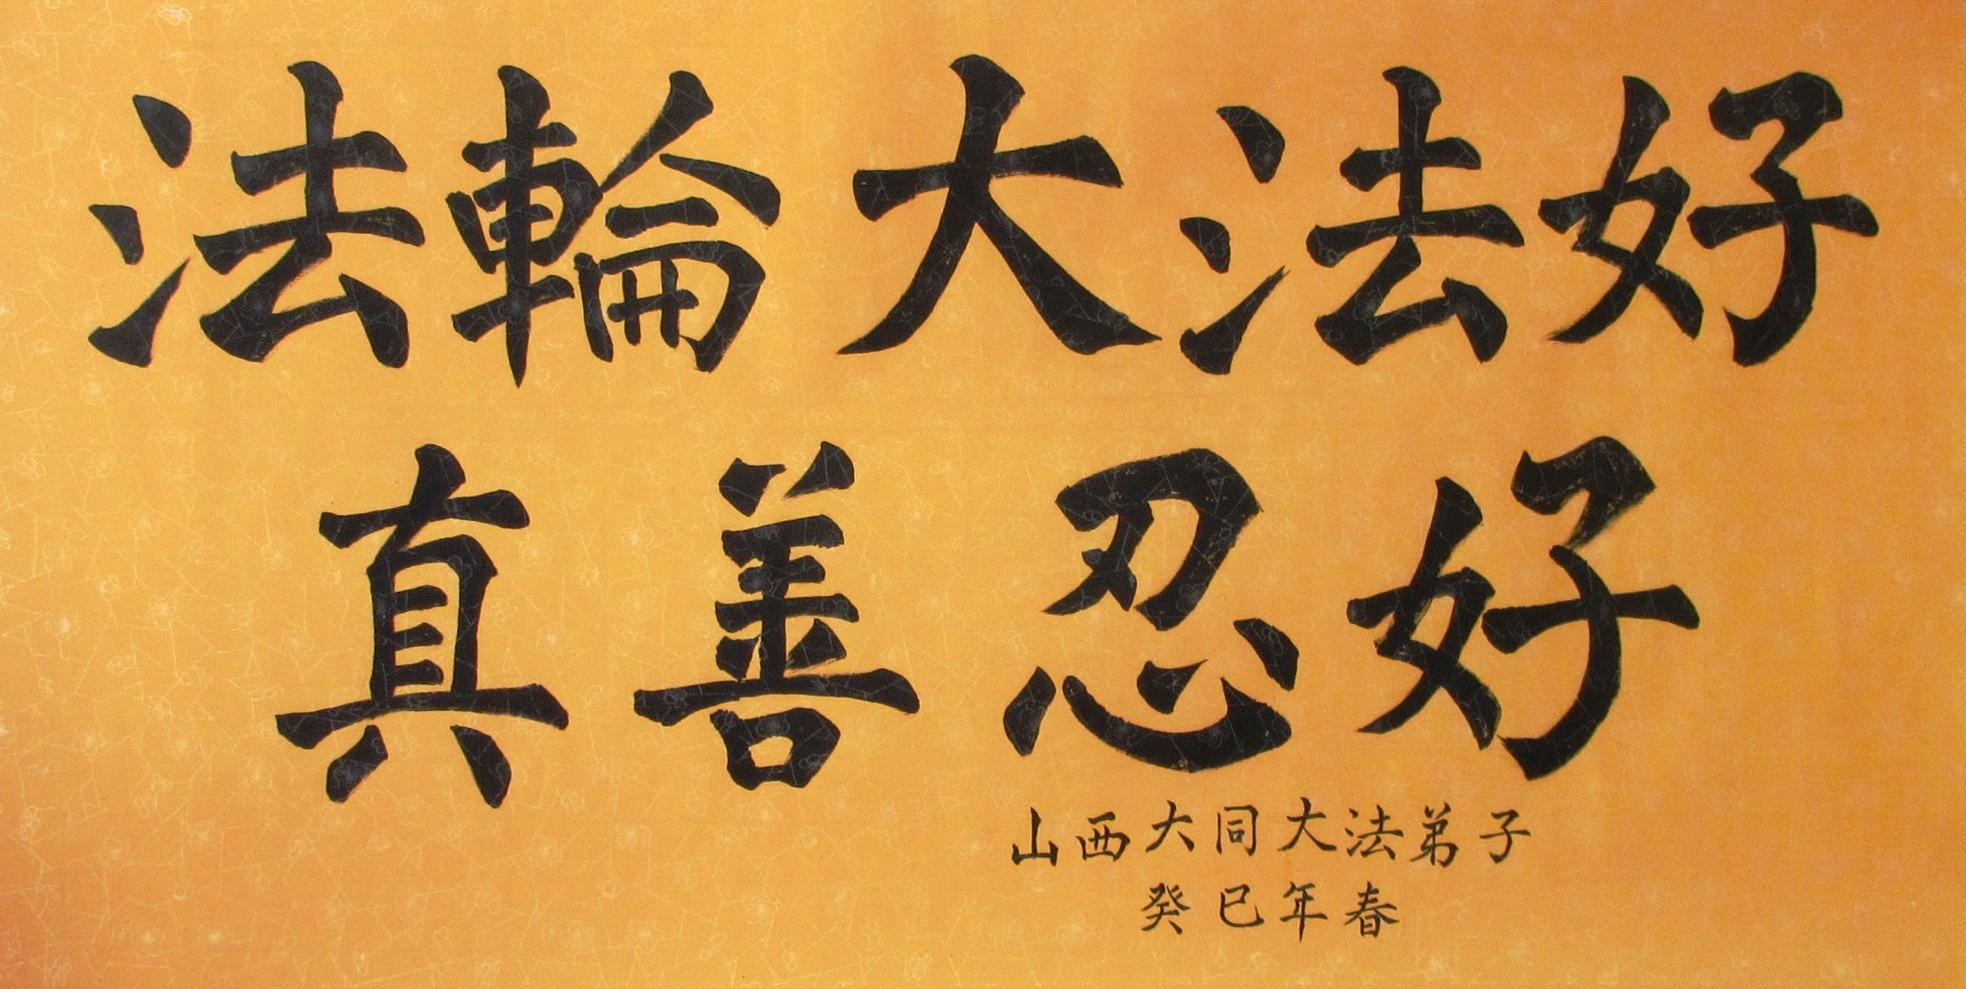 法輪大法好
真善忍好
山西大同大法弟子
癸巳年春